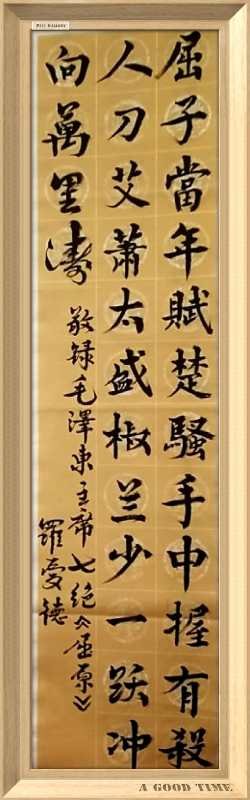 屈子當年賦楚騷手中握有殺
人刀艾蕭太盛椒兰少一跃冲
向萬里濤
敬録毛澤東主席七絕《屈原》
羅愛德
A GOOD TIME